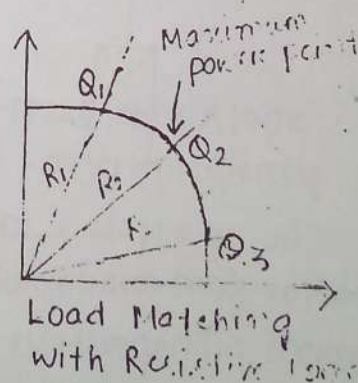 Maximum
power point
Q1
Q2
R1
R2
Q3
Load Matching
with Resistive